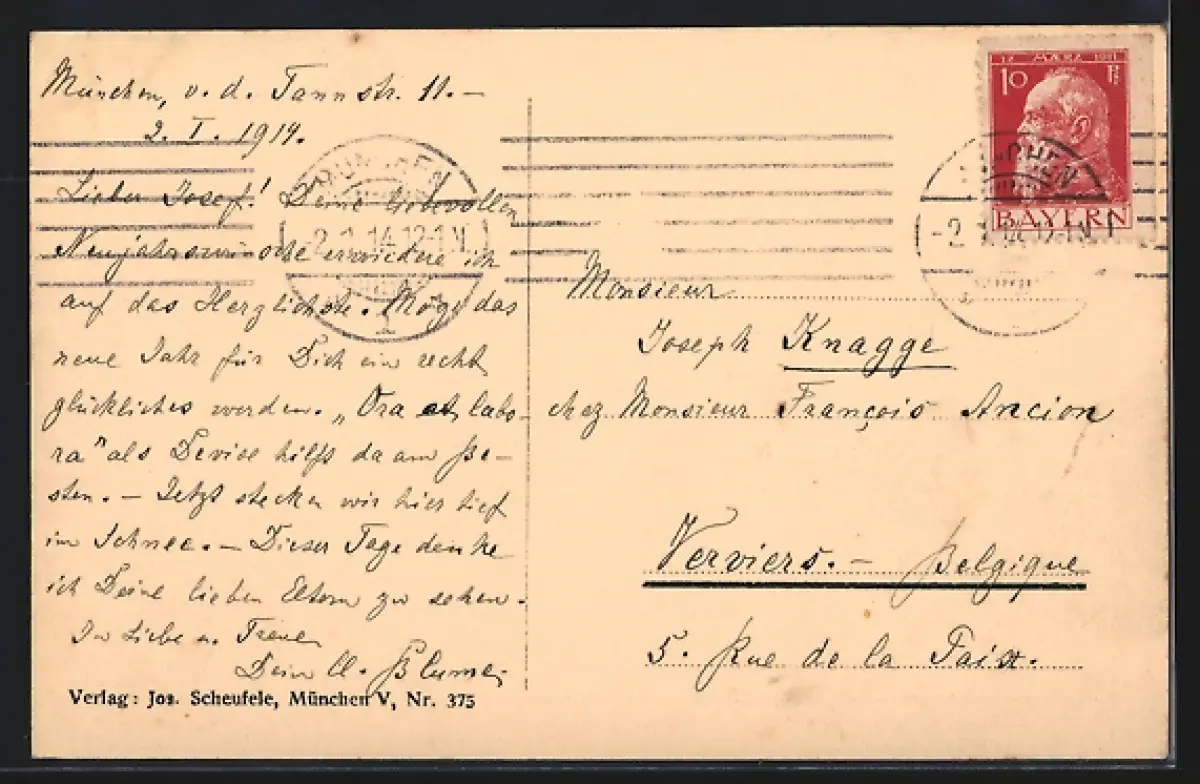 München, v. d. Tannstr. 11. –
2. I. 1914.
Lieber Josef! Deine liebevollen
Neujahrswünsche erwiedere ich
auf das Herzlichste. Möge das
neue Jahr für Dich ein recht
glückliches werden. „Ora et labo-
ra" als Devise hilft da am Be-
sten. – Jetzt stecken wir hier tief
im Schnee. – Dieser Tage denke
ich Deine lieben Eltern zu sehen.
In Liebe u. Treue
Dein A. Blume
Verlag: Jos. Scheufele, München V, Nr. 375
MÜNCHEN
2.1.14.12-1N.
1
12 MÄRZ 1911
10 Pf
BAYERN
MÜNCHEN
-2.1.14.12-1N.
Monsieur
Joseph Knagge
chez Monsieur François Ancion
Verviers. – Belgique
5. Rue de la Paix.